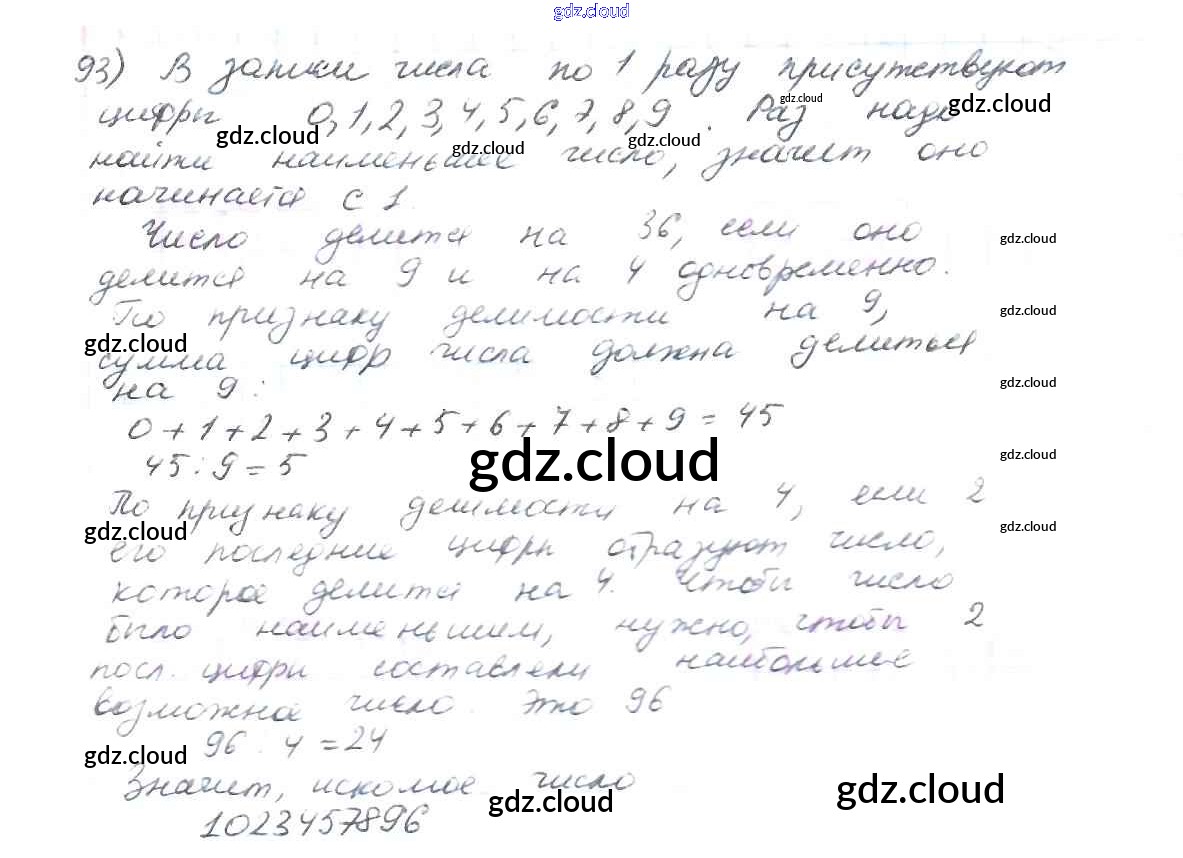 gdz.cloud
93) В записи числа по 1 разу присутствуют
цифры 0, 1, 2, 3, 4, 5, 6, 7, 8, 9. Раз надо
gdz.cloud gdz.cloud gdz.cloud gdz.cloud gdz.cloud
найти наименьшее число, значит оно
начинается с 1.
Число делится на 36, если оно
gdz.cloud
делится на 9 и на 4 одновременно.
По признаку делимости на 9,
gdz.cloud
gdz.cloud
сумма цифр числа должна делиться
на 9:
gdz.cloud
0 + 1 + 2 + 3 + 4 + 5 + 6 + 7 + 8 + 9 = 45
45 : 9 = 5
gdz.cloud
gdz.cloud
По признаку делимости на 4, если 2
gdz.cloud
gdz.cloud
его последние цифры образуют число,
которое делится на 4. Чтобы число
было наименьшим, нужно, чтобы 2
посл. цифры составляли наибольшее
возможное число. Это 96
96 : 4 = 24
gdz.cloud
Значит, искомое число
gdz.cloud
gdz.cloud
1023457896
gdz.cloud